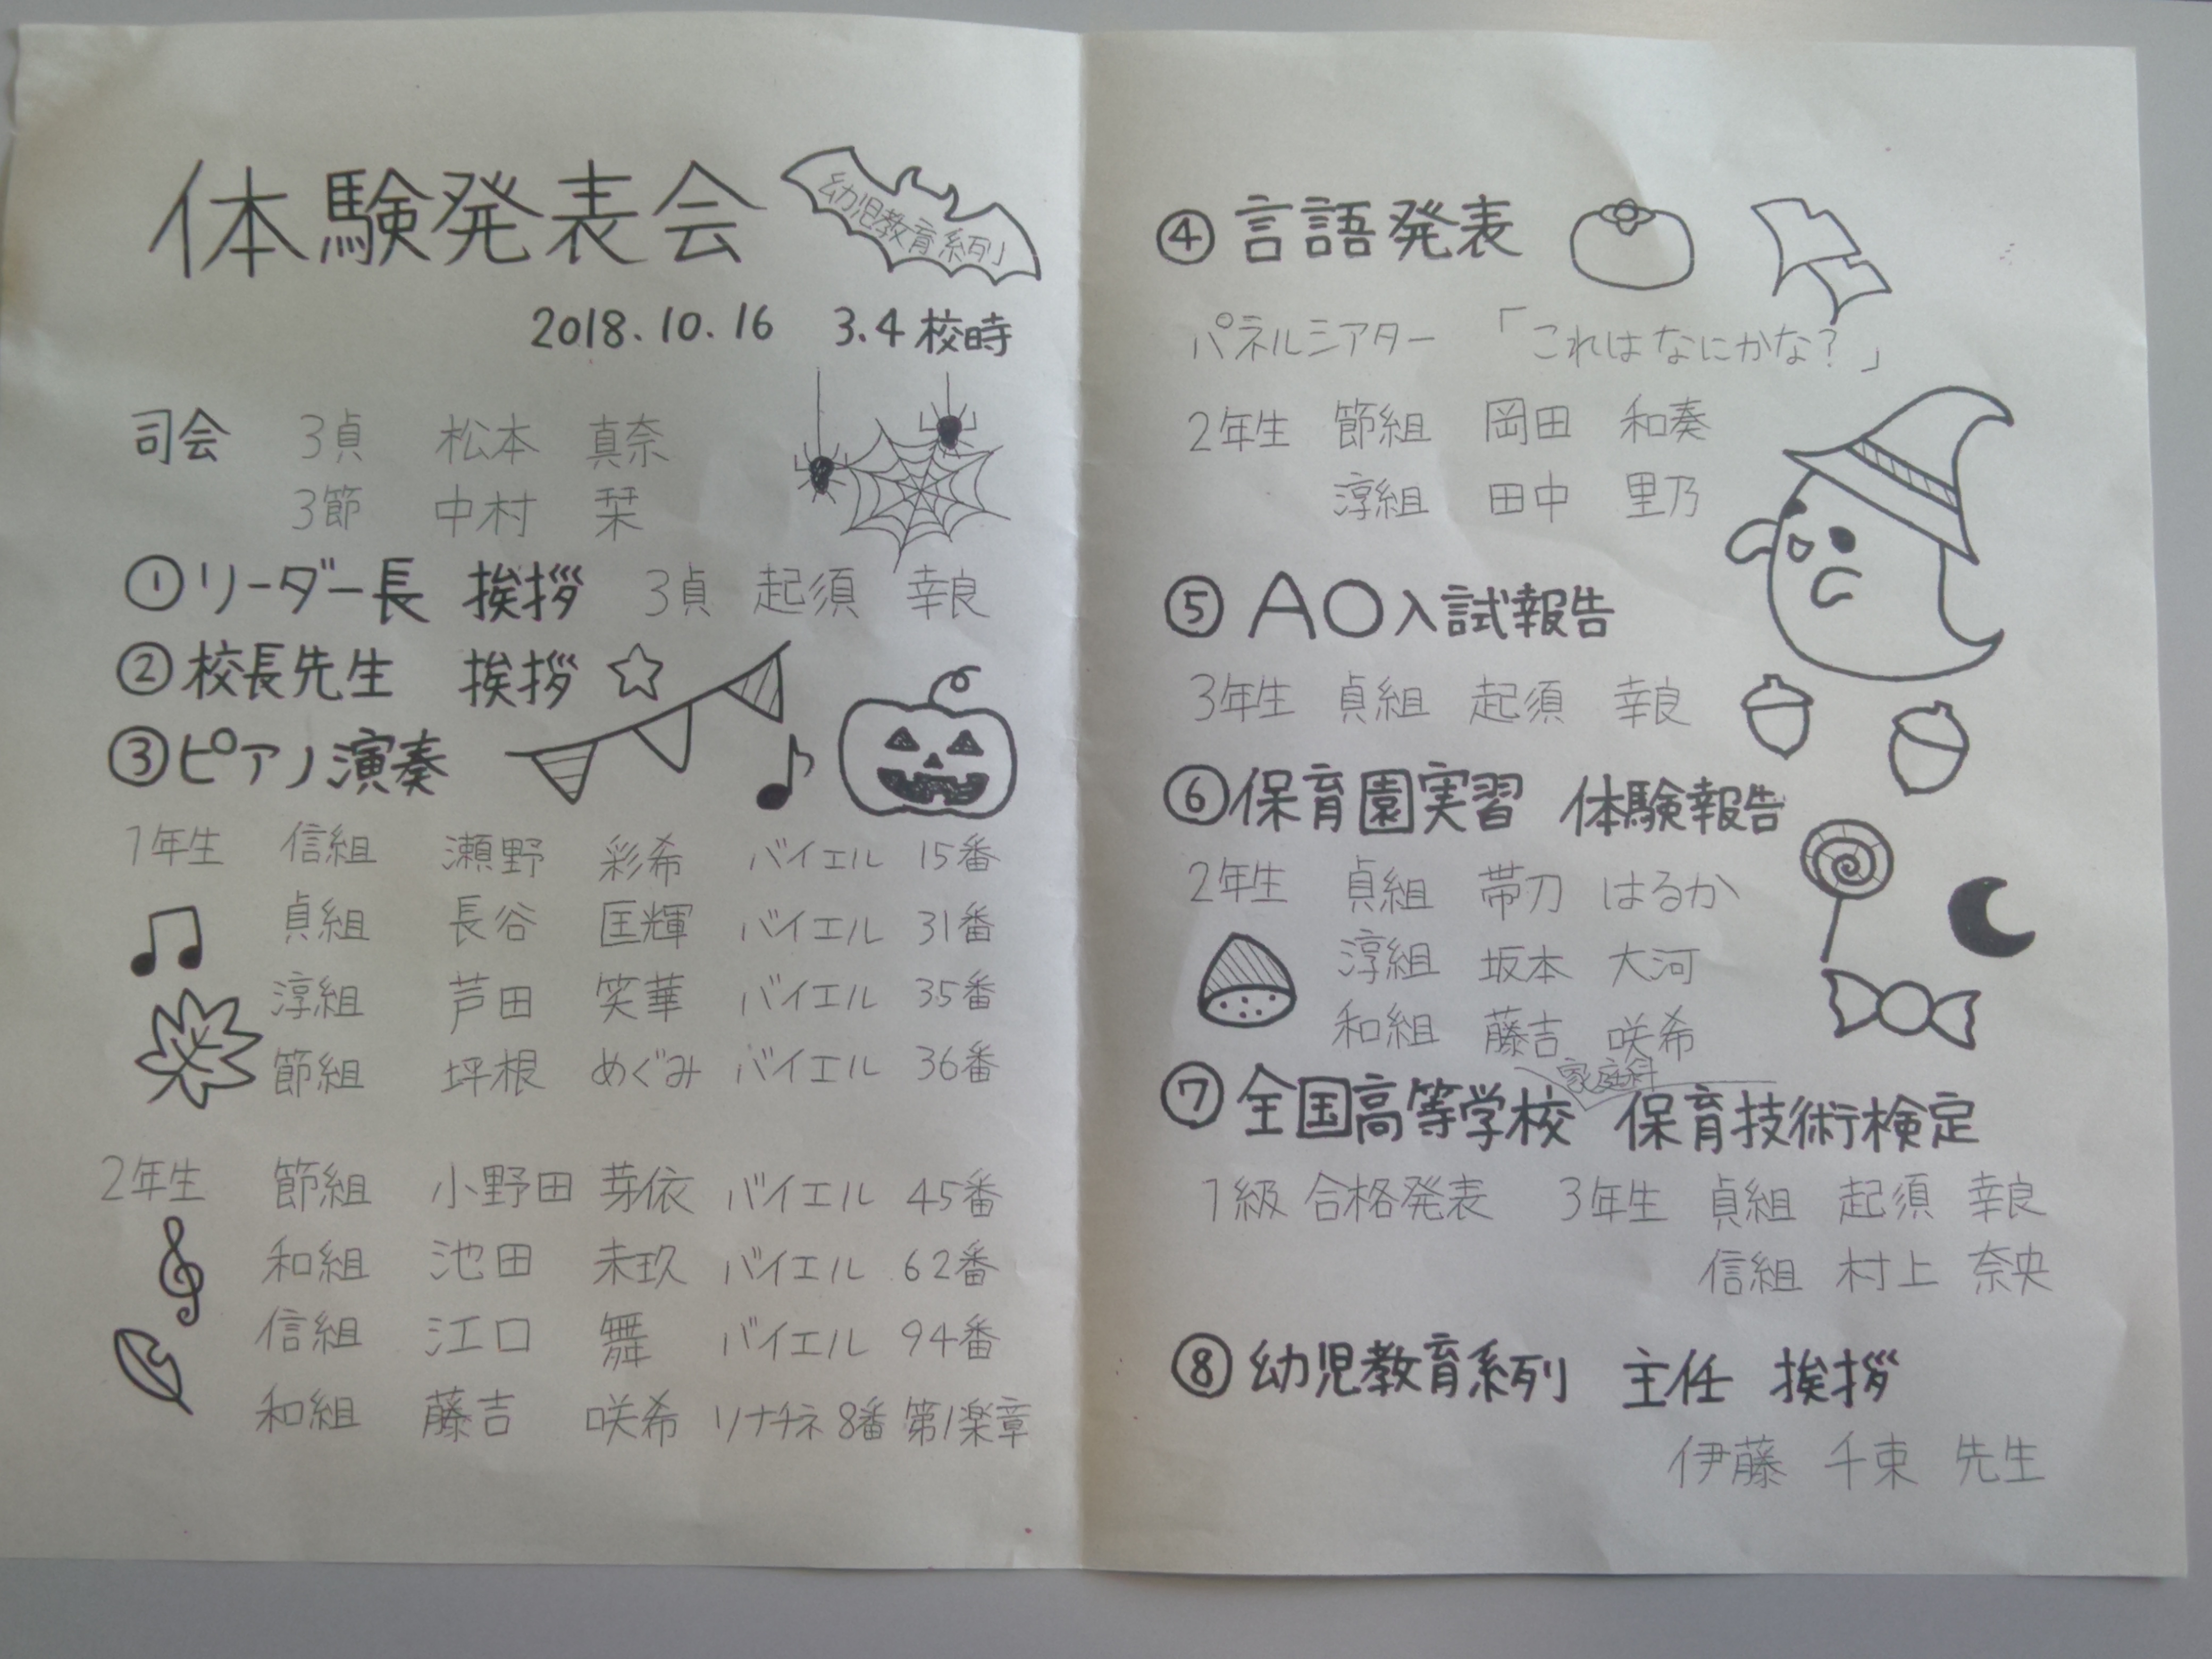 体験発表会
幼児教育系列
2018.10.16 3.4校時
司会 3貞 松本 真奈
3節 中村 栞
①リーダー長 挨拶 3貞 起須 幸良
②校長先生 挨拶
③ピアノ演奏
1年生 信組 瀬野 彩希 バイエル 15番
貞組 長谷 匡輝 バイエル 31番
淳組 芦田 笑華 バイエル 35番
節組 坪根 めぐみ バイエル 36番
2年生 節組 小野田 芽依 バイエル 45番
和組 池田 未玖 バイエル 62番
信組 江口 舞 バイエル 94番
和組 藤吉 咲希 ソナチネ 8番 第1楽章
④言語発表
パネルシアター 「これはなにかな?」
2年生 節組 岡田 和奏
淳組 田中 里乃
⑤AO入試報告
3年生 貞組 起須 幸良
⑥保育園実習 体験報告
2年生 貞組 帯刀 はるか
淳組 坂本 大河
和組 藤吉 咲希
家庭科
⑦全国高等学校 保育技術検定
1級 合格発表 3年生 貞組 起須 幸良
信組 村上 奈央
⑧幼児教育系列 主任 挨拶
伊藤 千束 先生